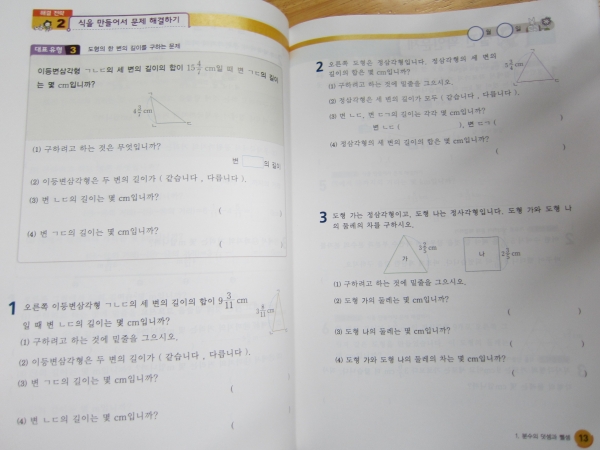 해결 전략
2 식을 만들어서 문제 해결하기
대표 유형 3 도형의 한 변의 길이를 구하는 문제
이등변삼각형 ㄱㄴㄷ의 세 변의 길이의 합이 cm일 때 변 ㄱㄷ의 길이
는 몇 cm입니까?
cm
(1) 구하려고 하는 것은 무엇입니까?
변 의 길이
(2) 이등변삼각형은 두 변의 길이가 ( 같습니다 , 다릅니다 ).
(3) 변 ㄴㄷ의 길이는 몇 cm입니까?
( )
(4) 변 ㄱㄷ의 길이는 몇 cm입니까?
( )
1 오른쪽 이등변삼각형 ㄱㄴㄷ의 세 변의 길이의 합이 9 3/11 cm
일 때 변 ㄴㄷ의 길이는 몇 cm입니까?
3 4/11 cm
(1) 구하려고 하는 것에 밑줄을 그으시오.
(2) 이등변삼각형은 두 변의 길이가 ( 같습니다 , 다릅니다 ).
(3) 변 ㄱㄷ의 길이는 몇 cm입니까?
( )
(4) 변 ㄴㄷ의 길이는 몇 cm입니까?
( )
월 일
2 오른쪽 도형은 정삼각형입니다. 정삼각형의 세 변의
길이의 합은 몇 cm입니까?
cm
(1) 구하려고 하는 것에 밑줄을 그으시오.
(2) 정삼각형은 세 변의 길이가 모두 ( 같습니다 , 다릅니다 ).
(3) 변 ㄴㄷ, 변 ㄷㄱ의 길이는 각각 몇 cm입니까?
변 ㄴㄷ ( ), 변 ㄷㄱ ( )
(4) 정삼각형의 세 변의 길이의 합은 몇 cm입니까?
( )
3 도형 가는 정삼각형이고, 도형 나는 정사각형입니다. 도형 가와 도형 나
의 둘레의 차를 구하시오.
가 cm 나 cm
(1) 구하려고 하는 것에 밑줄을 그으시오.
(2) 도형 가의 둘레는 몇 cm입니까?
( )
(3) 도형 나의 둘레는 몇 cm입니까?
( )
(4) 도형 가와 도형 나의 둘레의 차는 몇 cm입니까?
( )
1. 분수의 덧셈과 뺄셈 13